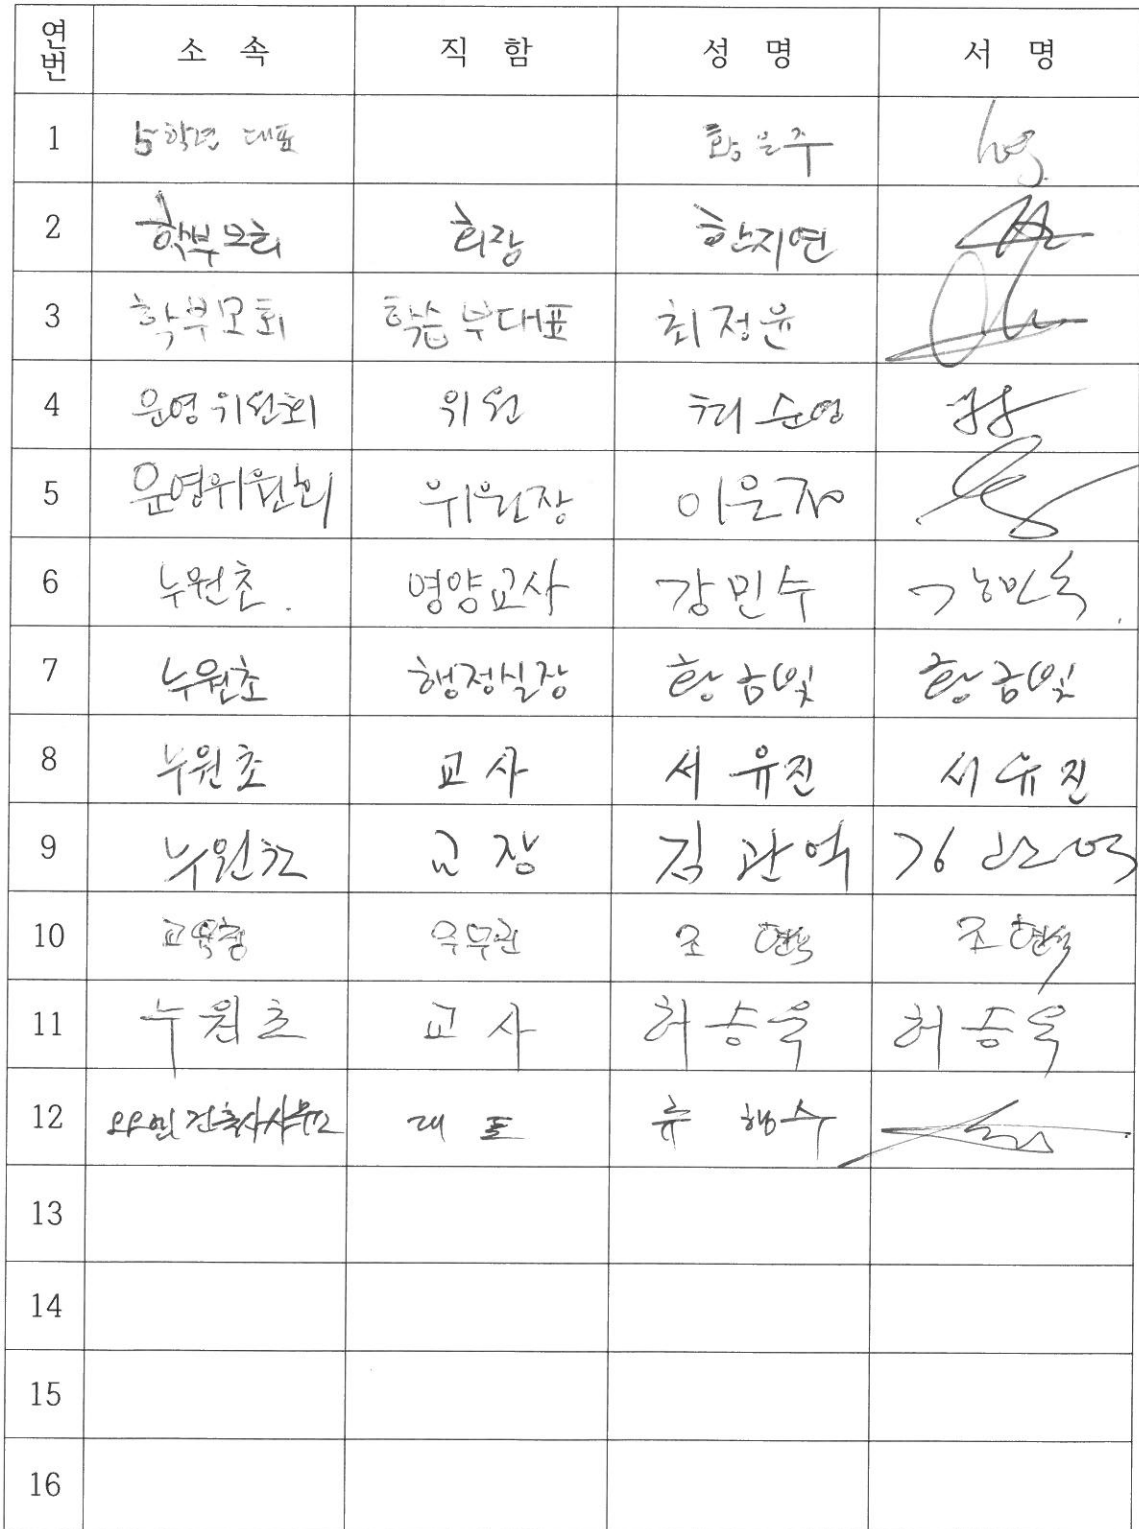 연번 소속 직함 성명 서명
1 5학년 대표 황은주
2 학부모회 회장 한지연
3 학부모회 학습부대표 최정윤
4 운영위원회 위원 최순영
5 운영위원회 위원장 이은자
6 누원초. 영양교사 강민수 강민수
7 누원초 행정실장 황금빛 황금빛
8 누원초 교사 서유진 서유진
9 누원초 교장 김관억 김관억
10 교육청 주무관 조현
11 누원초 교사 허승욱 허승욱
12 건축사사무소 대표 류행수
13
14
15
16